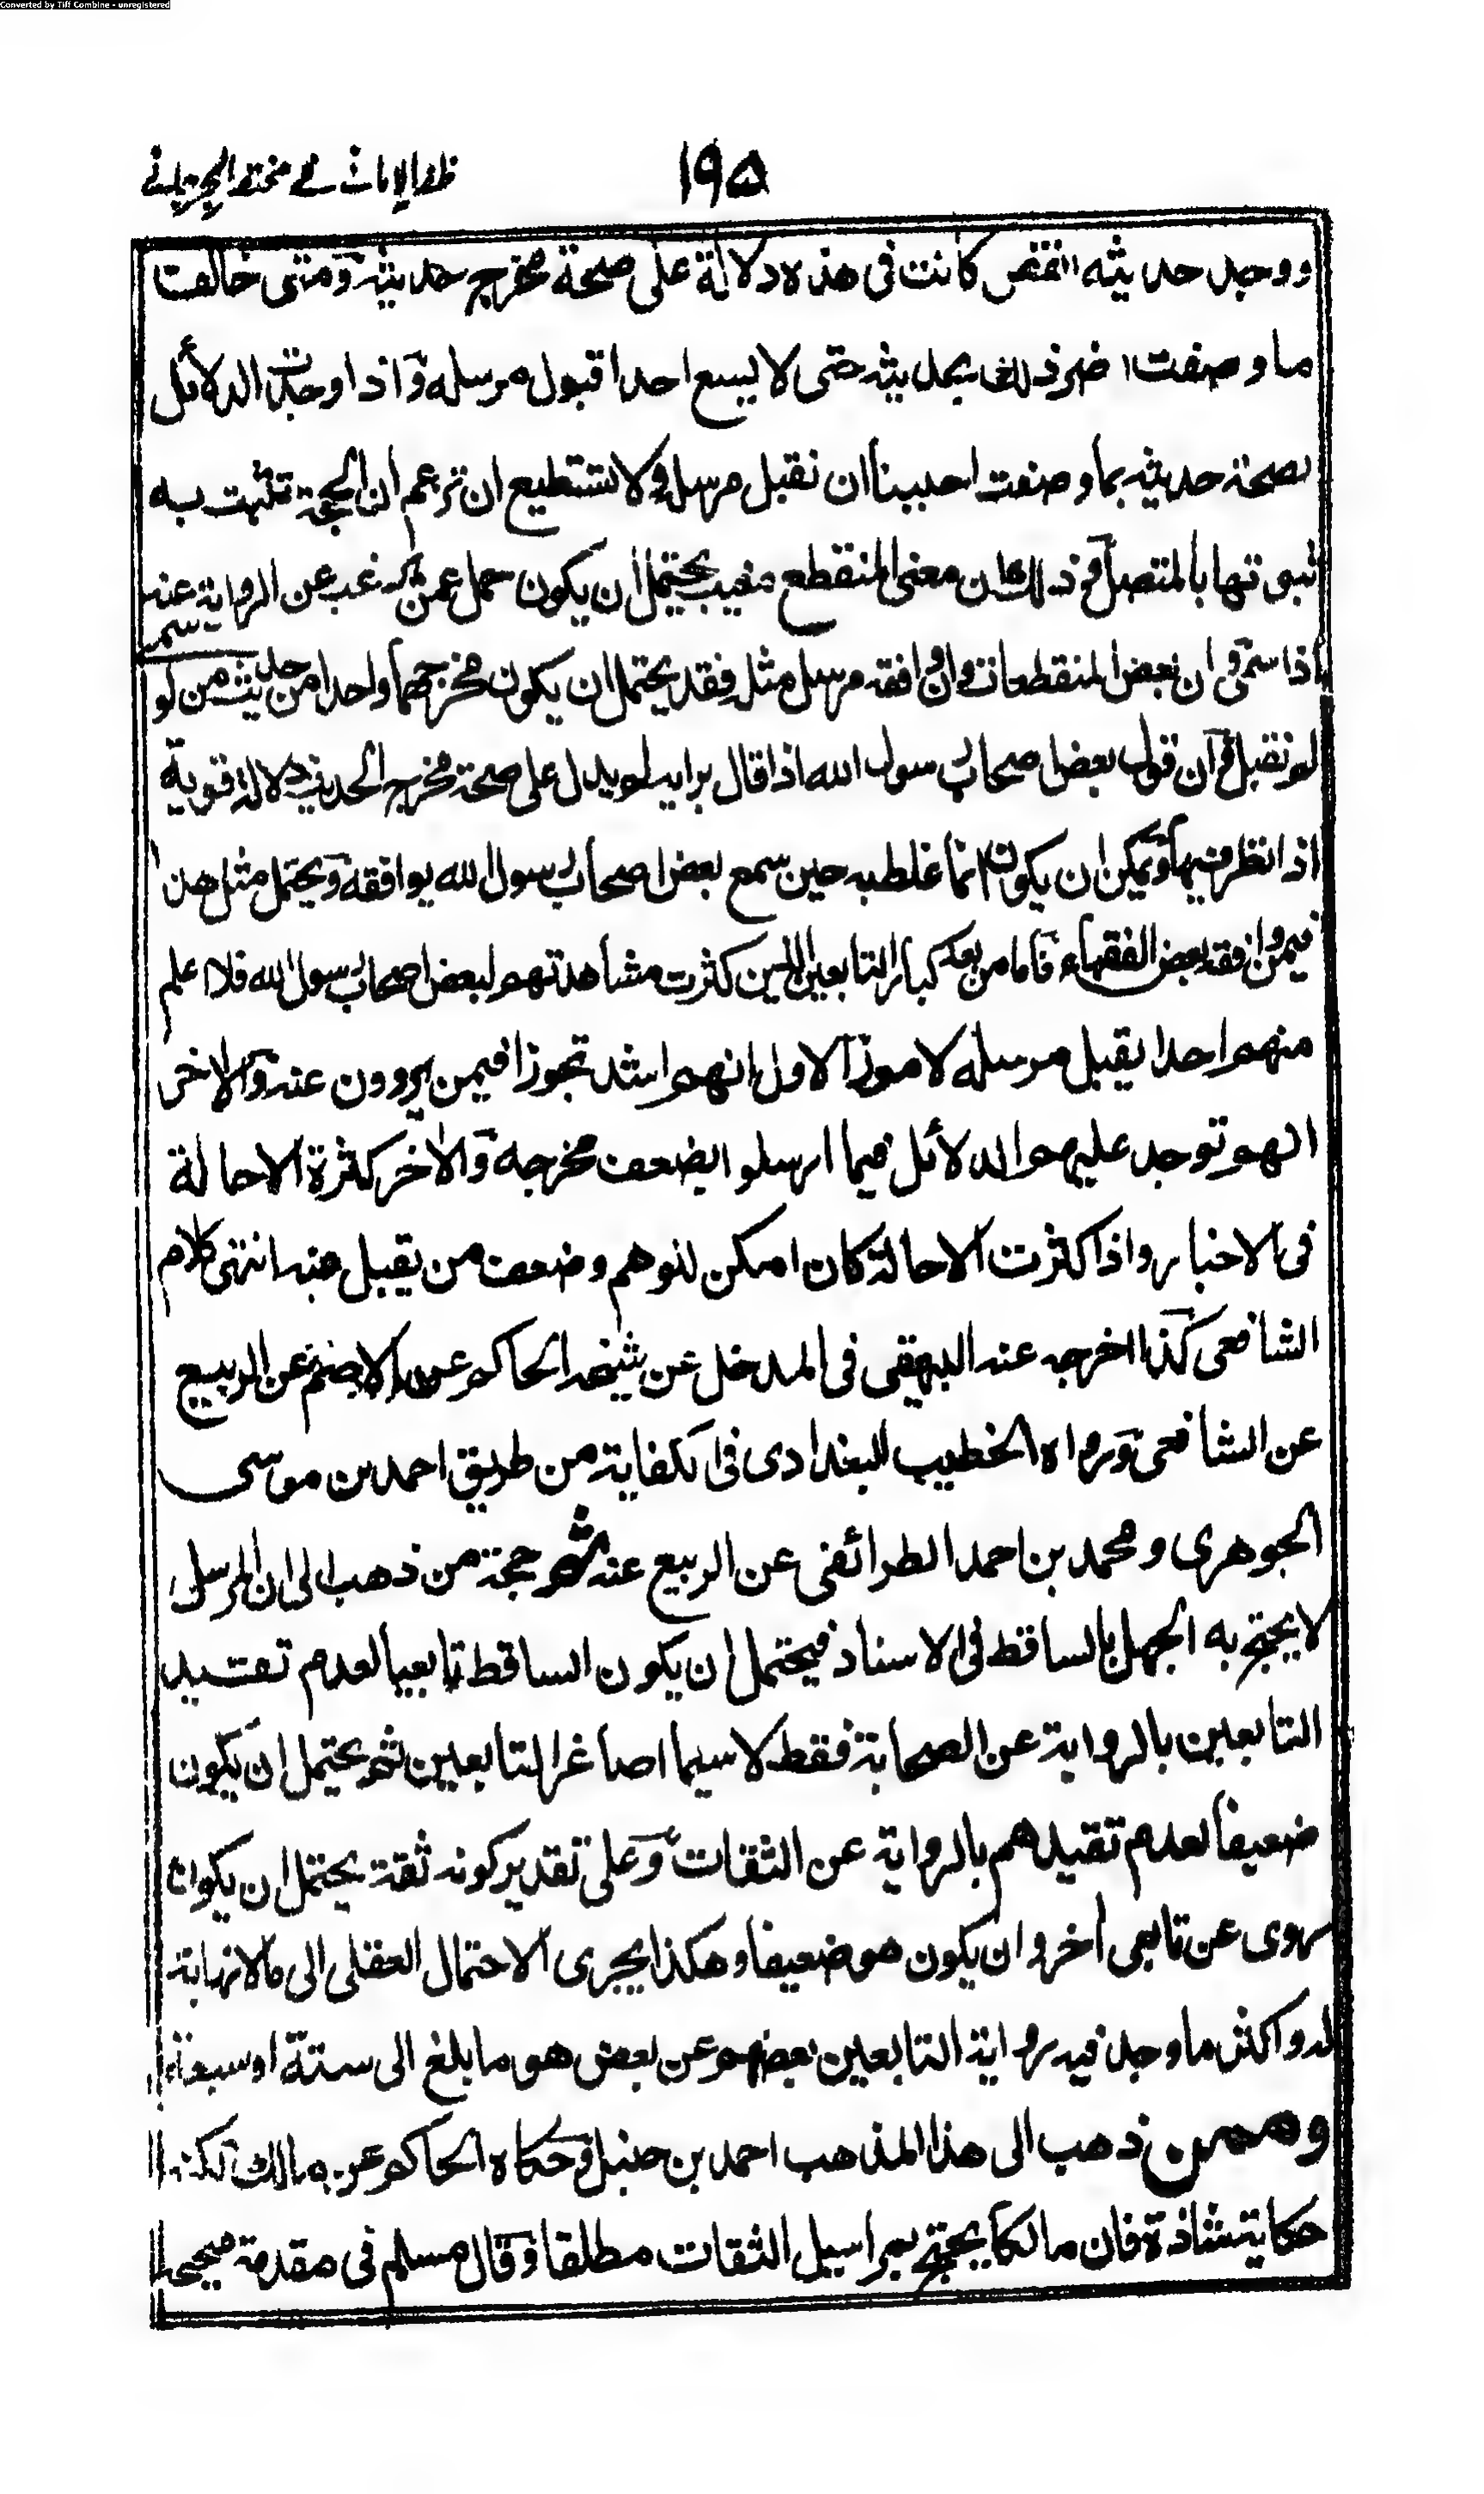 Converted by Tiff Combine - unregistered
ظفر الامانی فی مختصر الجرجانی
١٩٥
ووجد حديثه انقص كانت فى هذه دلالة على صحة مخرج حديثه ومتى خالفت
ما وصفت اضر ذلك بحديثه حتى لا يسع احدا قبول مرسله واذا وجدت الدلائل
بصحة حديثه بما وصفت احببنا ان نقبل مرسله ولا نستطيع ان نزعم ان الحجة تثبت به
ثبوتها بالمتصل وذلك ان معنى المنقطع مغيب يحتمل ان يكون حمل عمن يرغب عن الرواية عنه
اذا سمى وان بعض المنقطعات وان وافقه مرسل مثله فقد يحتمل ان يكون مخرجهما واحدا من حديث من لو سمى
لم نقبل وان قول بعض صحاب رسول الله اذا قال برايه لو يدل على صحة مخرج الحديث دلالة قوية
اذا نظر فيها ويمكن ان يكون انما غلط به حين سمع بعض اصحاب رسول الله يوافقه ويحتمل مثل هذا
فيمن وافقه بعض الفقهاء فاما من بعد كبار التابعين الذين كثرت مشاهدتهم لبعض اصحاب رسول الله فلا اعلم
منهم احدا يقبل مرسله لامور الاول انهم اشد تجوزا فيمن يروون عنه والاخر
انهم توجد عليهم الدلائل فيما ارسلوا بضعف مخرجه والاخر كثرة الاحالة
فى الاخبار واذا كثرت الاحالة كان امكن للوهم وضعف من يقبل عنه انتهى كلام
الشافعى كذا اخرجه عنه البيهقى فى المدخل عن شيخه الحاكم عن الاصم عن الربيع
عن الشافعى ورواه الخطيب البغدادى فى الكفاية من طريق احمد بن موسى
الجوهرى ومحمد بن احمد الطرائفى عن الربيع عنه ثم حجة من ذهب الى ان المرسل
لا يحتج به الجهل بالساقط فى الاسناد فيحتمل ان يكون الساقط تابعيا لعدم تقييد
التابعين بالرواية عن الصحابة فقط لا سيما اصاغر التابعين ثم يحتمل ان يكون
ضعيفا لعدم تقيدهم بالرواية عن الثقات وعلى تقدير كونه ثقة يحتمل ان يكون
روى عن تابعى اخر وان يكون هو ضعيفا وهكذا يجرى الاحتمال العقلى الى ما لا نهاية
له واكثر ما وجد فيه رواية التابعين بعضهم عن بعض هو ما بلغ الى ستة او سبعة
وممن ذهب الى هذا المذهب احمد بن حنبل وحكاه الحاكم عن مالك لكنه
حكاية شاذة فان مالكا يحتج بمراسيل الثقات مطلقا وقال مسلم فى مقدمة صحيحه